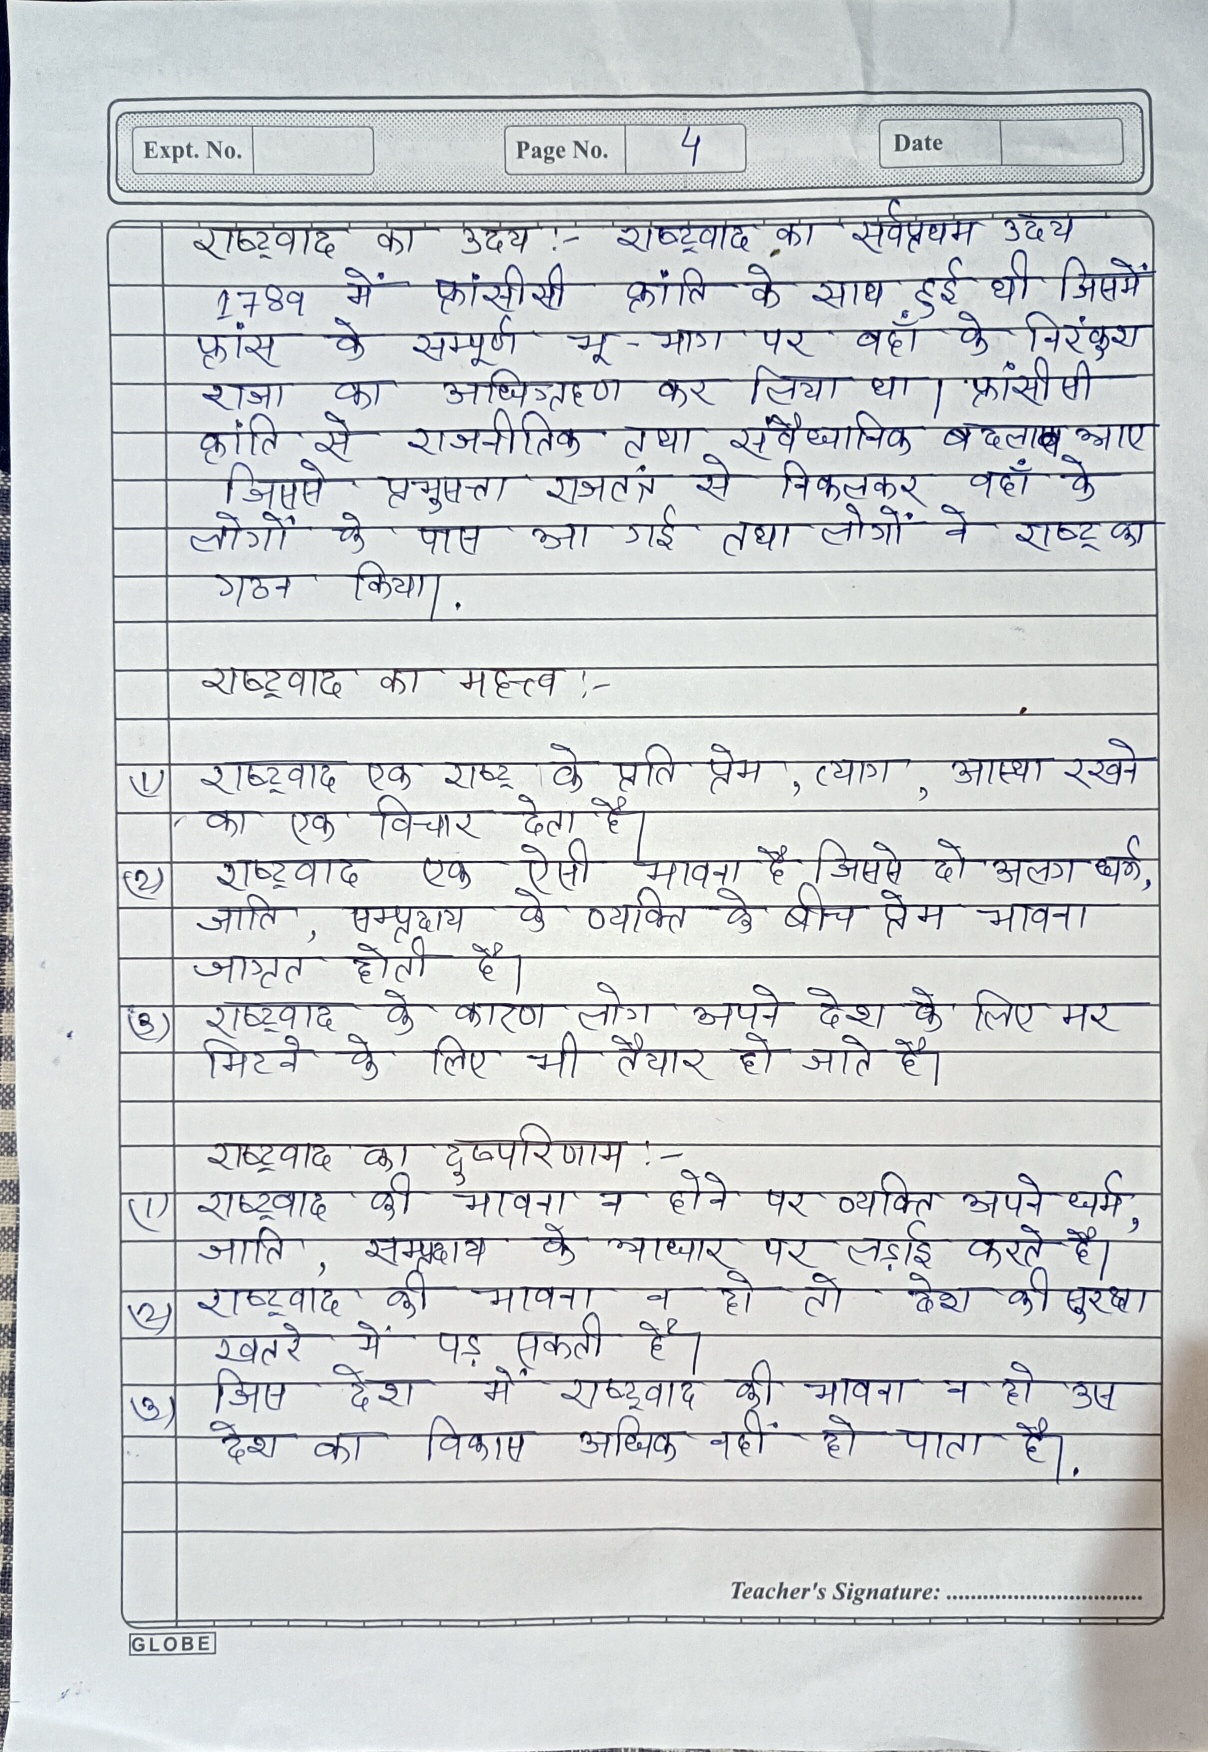 Expt. No. Page No. 4 Date
राष्ट्रवाद का उदय :- राष्ट्रवाद का सर्वप्रथम उदय
1789 में फ्रांसीसी क्रांति के साथ हुई थी जिसमें
फ्रांस के सम्पूर्ण भू-भाग पर वहाँ के निरंकुश
राजा का अधिग्रहण कर लिया था। फ्रांसीसी
क्रांति से राजनीतिक तथा संवैधानिक बदलाव आए
जिससे प्रभुसत्ता राजतंत्र से निकलकर वहाँ के
लोगों के पास आ गई तथा लोगों ने राष्ट्र का
गठन किया।.
राष्ट्रवाद का महत्त्व :-
(1) राष्ट्रवाद एक राष्ट्र के प्रति प्रेम, त्याग, आस्था रखने
का एक विचार देता है।
(2) राष्ट्रवाद एक ऐसी भावना है जिससे दो अलग धर्म,
जाति, सम्प्रदाय के व्यक्ति के बीच प्रेम भावना
जागृत होती है।
(3) राष्ट्रवाद के कारण लोग अपने देश के लिए मर
मिटने के लिए भी तैयार हो जाते है।
राष्ट्रवाद का दुष्परिणाम :-
(1) राष्ट्रवाद की भावना न होने पर व्यक्ति अपने धर्म,
जाति, सम्प्रदाय के आधार पर लड़ाई करते है।
(2) राष्ट्रवाद की भावना न हो तो देश की सुरक्षा
खतरे में पड़ सकती है।
(3) जिस देश में राष्ट्रवाद की भावना न हो उस
देश का विकास अधिक नहीं हो पाता है।.
Teacher's Signature: .................................
GLOBE